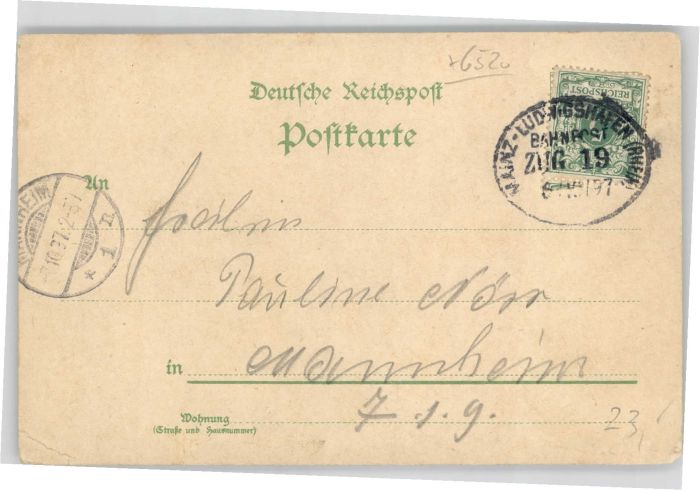 6520
Deutsche Reichspost
Postkarte
REICHSPOST
MAINZ-LUDWIGSHAFEN (RHEIN)
BAHNPOST
ZUG 19
97
An
MANNHEIM
10.97. 2-3N
* 1 n
Fräulein
Pauline Nörr
in Mannheim
Wohnung 7. 1. 9.
(Straße und Hausnummer)
23,